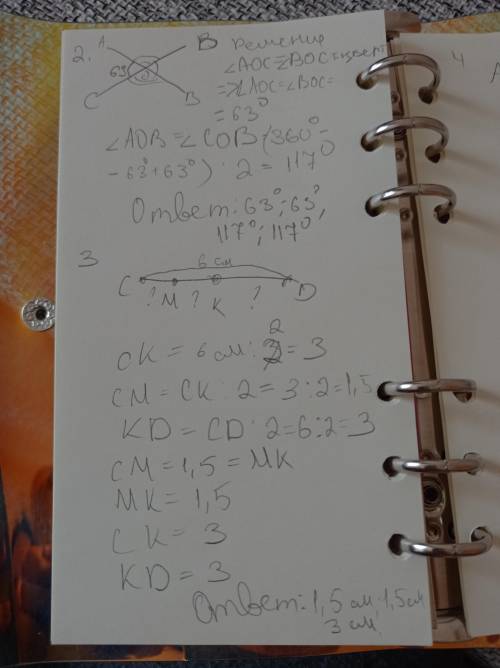 2. A B Решение
63° O ∠AOC=∠BOC
C B => ∠AOC=∠BOC=
= 63°
∠AOB = ∠COB (360°-
- 63°+63°) : 2 = 117°
Ответ: 63°; 63°,
117°; 117°
3
6 см
C ? M ? K ? D
CK = 6 см : 2 = 3
CM = CK : 2 = 3 : 2 = 1,5
KD = CD : 2 = 6 : 2 = 3
CM = 1,5 = MK
MK = 1,5
CK = 3
KD = 3
Ответ: 1,5 см, 1,5 см
3 см,
4